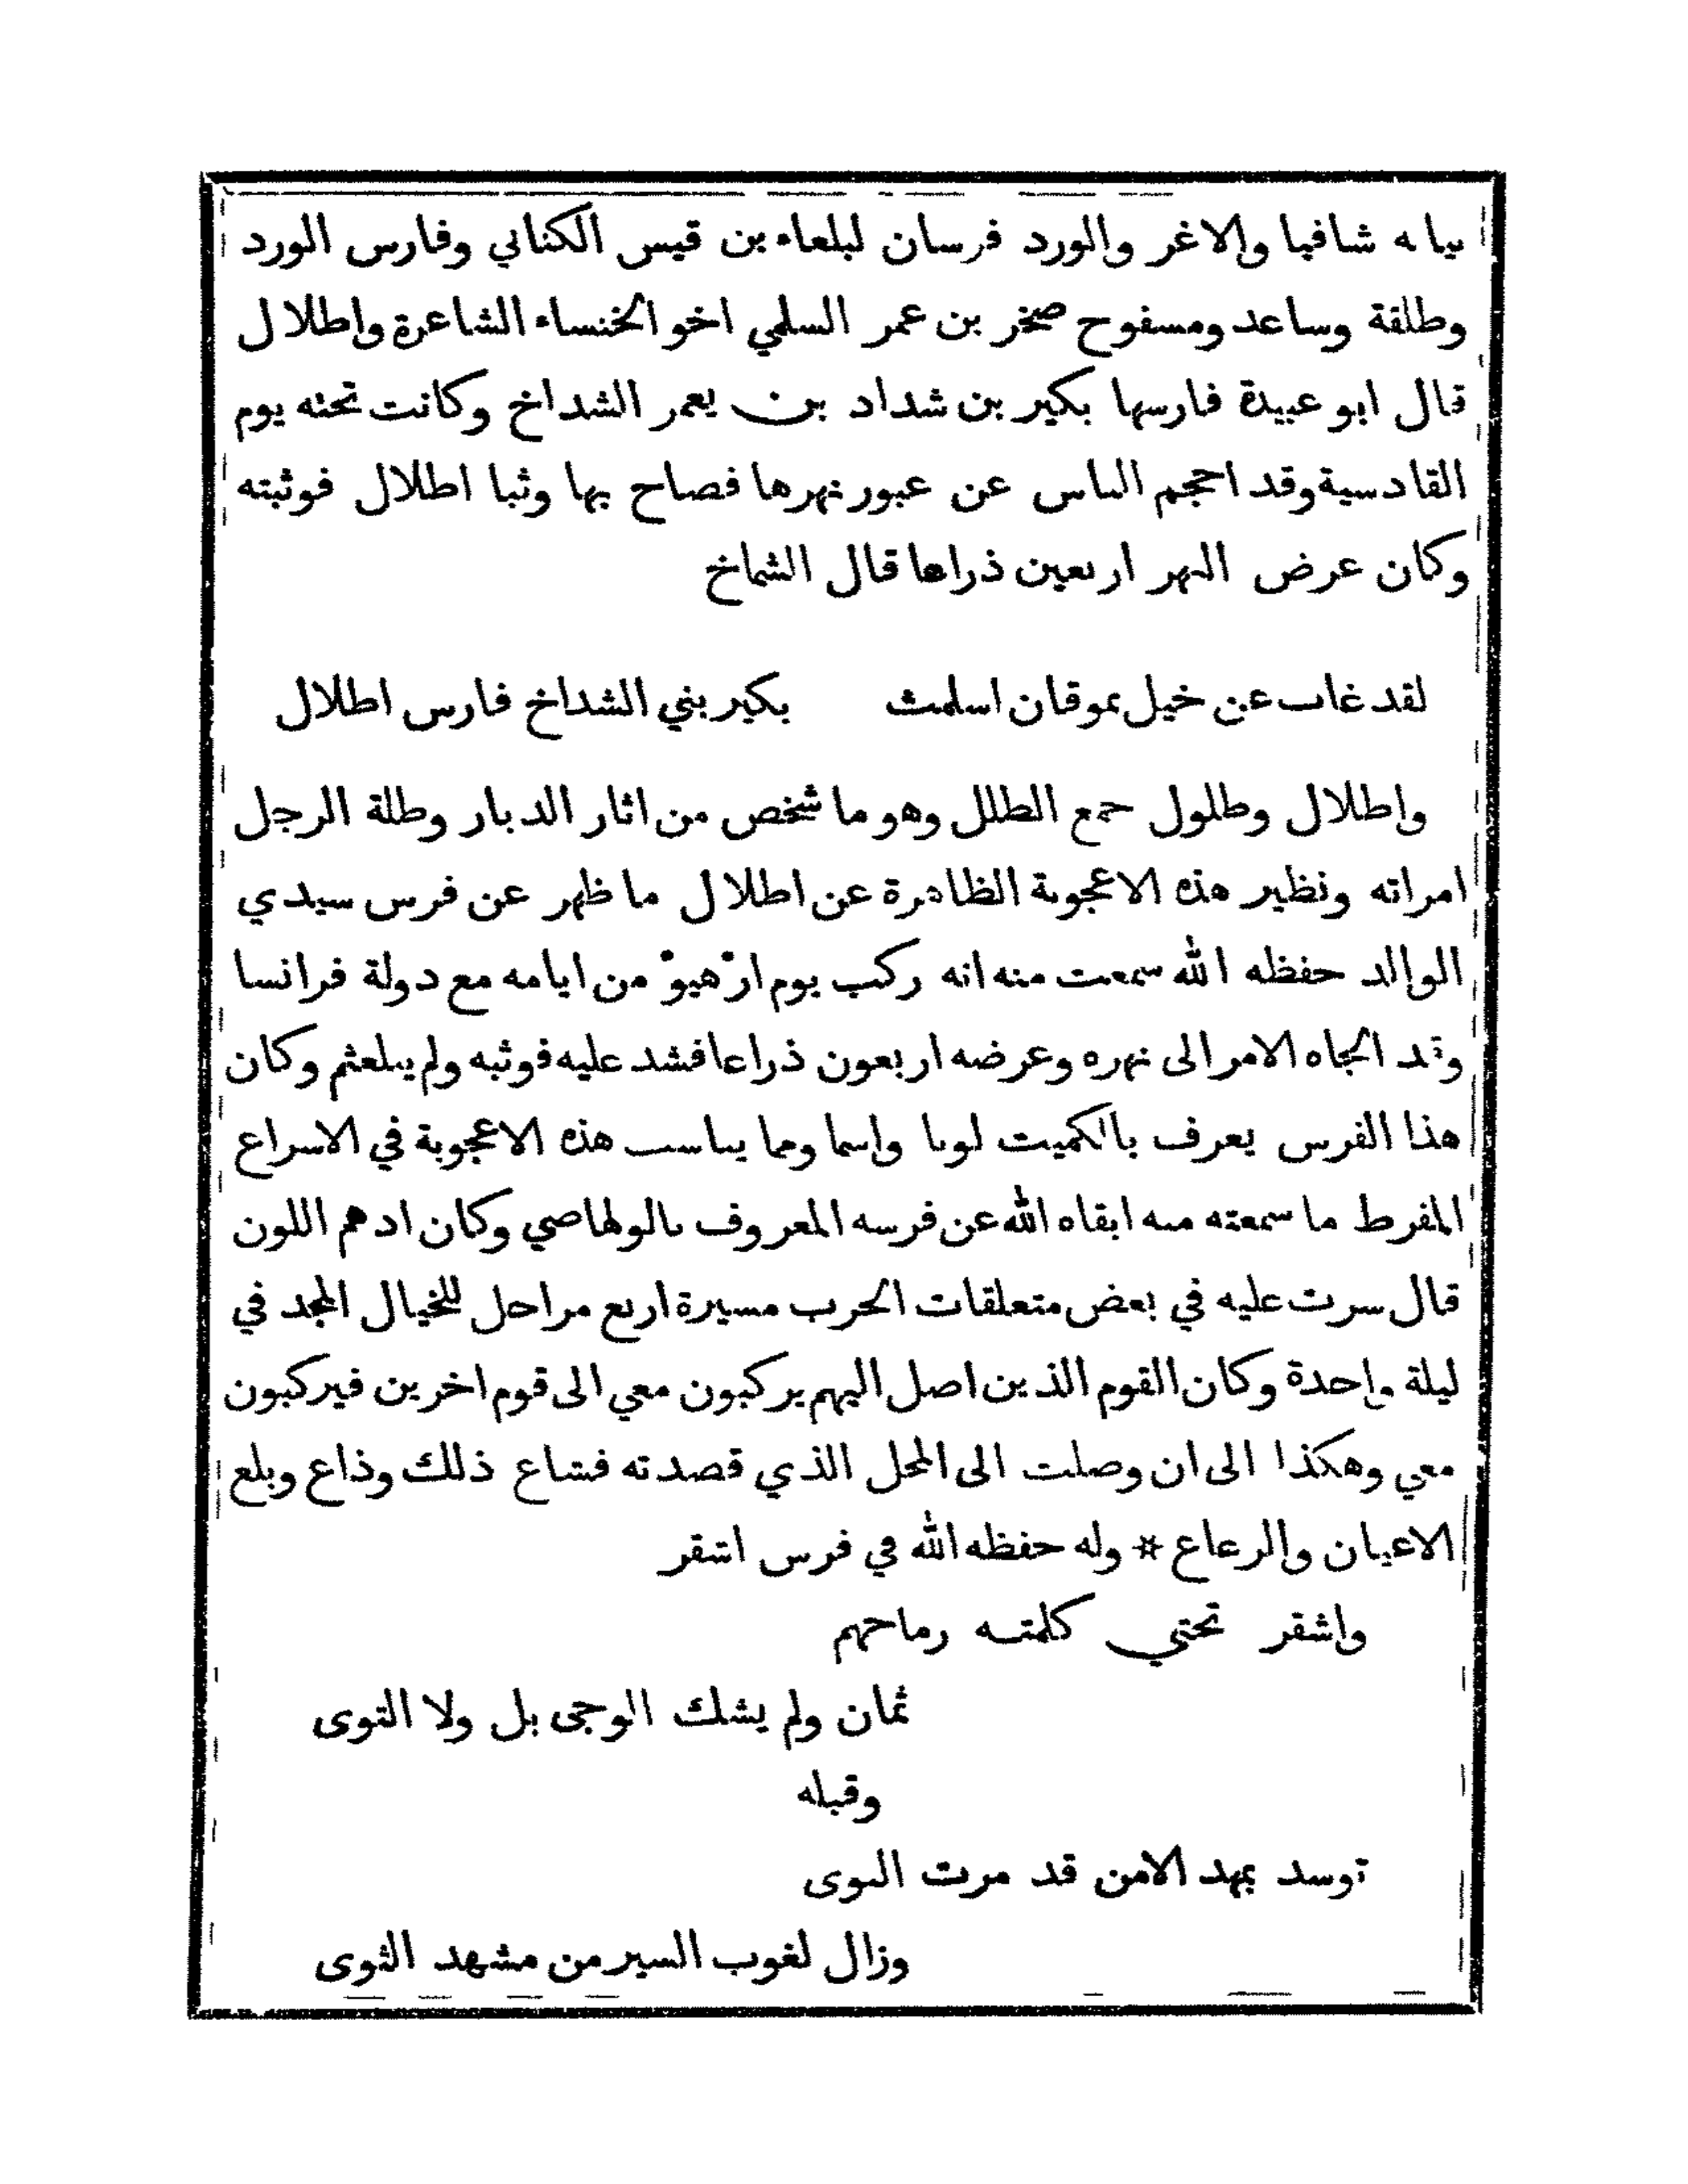 بيانه شافيا والاغر والورد فرسان لبلعاء بن قيس الكناني وفارس الورد
وطلقة وساعد ومسفوح صخر بن عمر السلمي اخو الخنساء الشاعرة واطلال
قال ابو عبيدة فارسها بكير بن شداد بن يعمر الشداخ وكانت تحته يوم
القادسية وقد احجم الناس عن عبور نهرها فصاح بها وثبا اطلال فوثبته
وكان عرض النهر اربعين ذراعا قال الشماخ
لقد غاب عن خيل بموقان اسلمت بكير بني الشداخ فارس اطلال
واطلال وطلول جمع الطلل وهو ما شخص من اثار الديار وطلة الرجل
امراته ونظير هذه الاعجوبة الظاهرة عن اطلال ما ظهر عن فرس سيدي
الوالد حفظه الله سمعت منه انه ركب يوم ارْهيوْ من ايامه مع دولة فرانسا
وقد الجاه الامر الى نهره وعرضه اربعون ذراعا فشد عليه فوثبه ولم يتلعثم وكان
هذا الفرس يعرف بالكميت لونا واسما ومما يناسب هذه الاعجوبة في الاسراع
المفرط ما سمعته منه ابقاه الله عن فرسه المعروف بالولهاصي وكان ادهم اللون
قال سرت عليه في بعض متعلقات الحرب مسيرة اربع مراحل للخيال المجد في
ليلة واحدة وكان القوم الذين اصل اليهم يركبون معي الى قوم اخرين فيركبون
معي وهكذا الى ان وصلت الى المحل الذي قصدته فشاع ذلك وذاع وبلغ
الاعيان والرعاع * وله حفظه الله في فرس اشقر
واشقر تحتي كلمته رماحهم
ثمان ولم يشك الوجى بل ولا التوى
وقبله
توسد بمهد الامن قد مرت النوى
وزال لغوب السير من مشهد الثوى